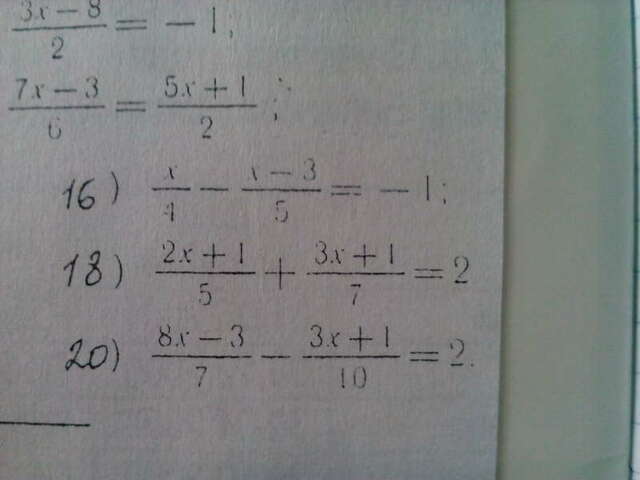 (3x − 8)/2 = − 1;
(7x − 3)/6 = (5x + 1)/2 ;
16) x/4 − (x − 3)/5 = − 1;
18) (2x + 1)/5 + (3x + 1)/7 = 2
20) (8x − 3)/7 − (3x + 1)/10 = 2.